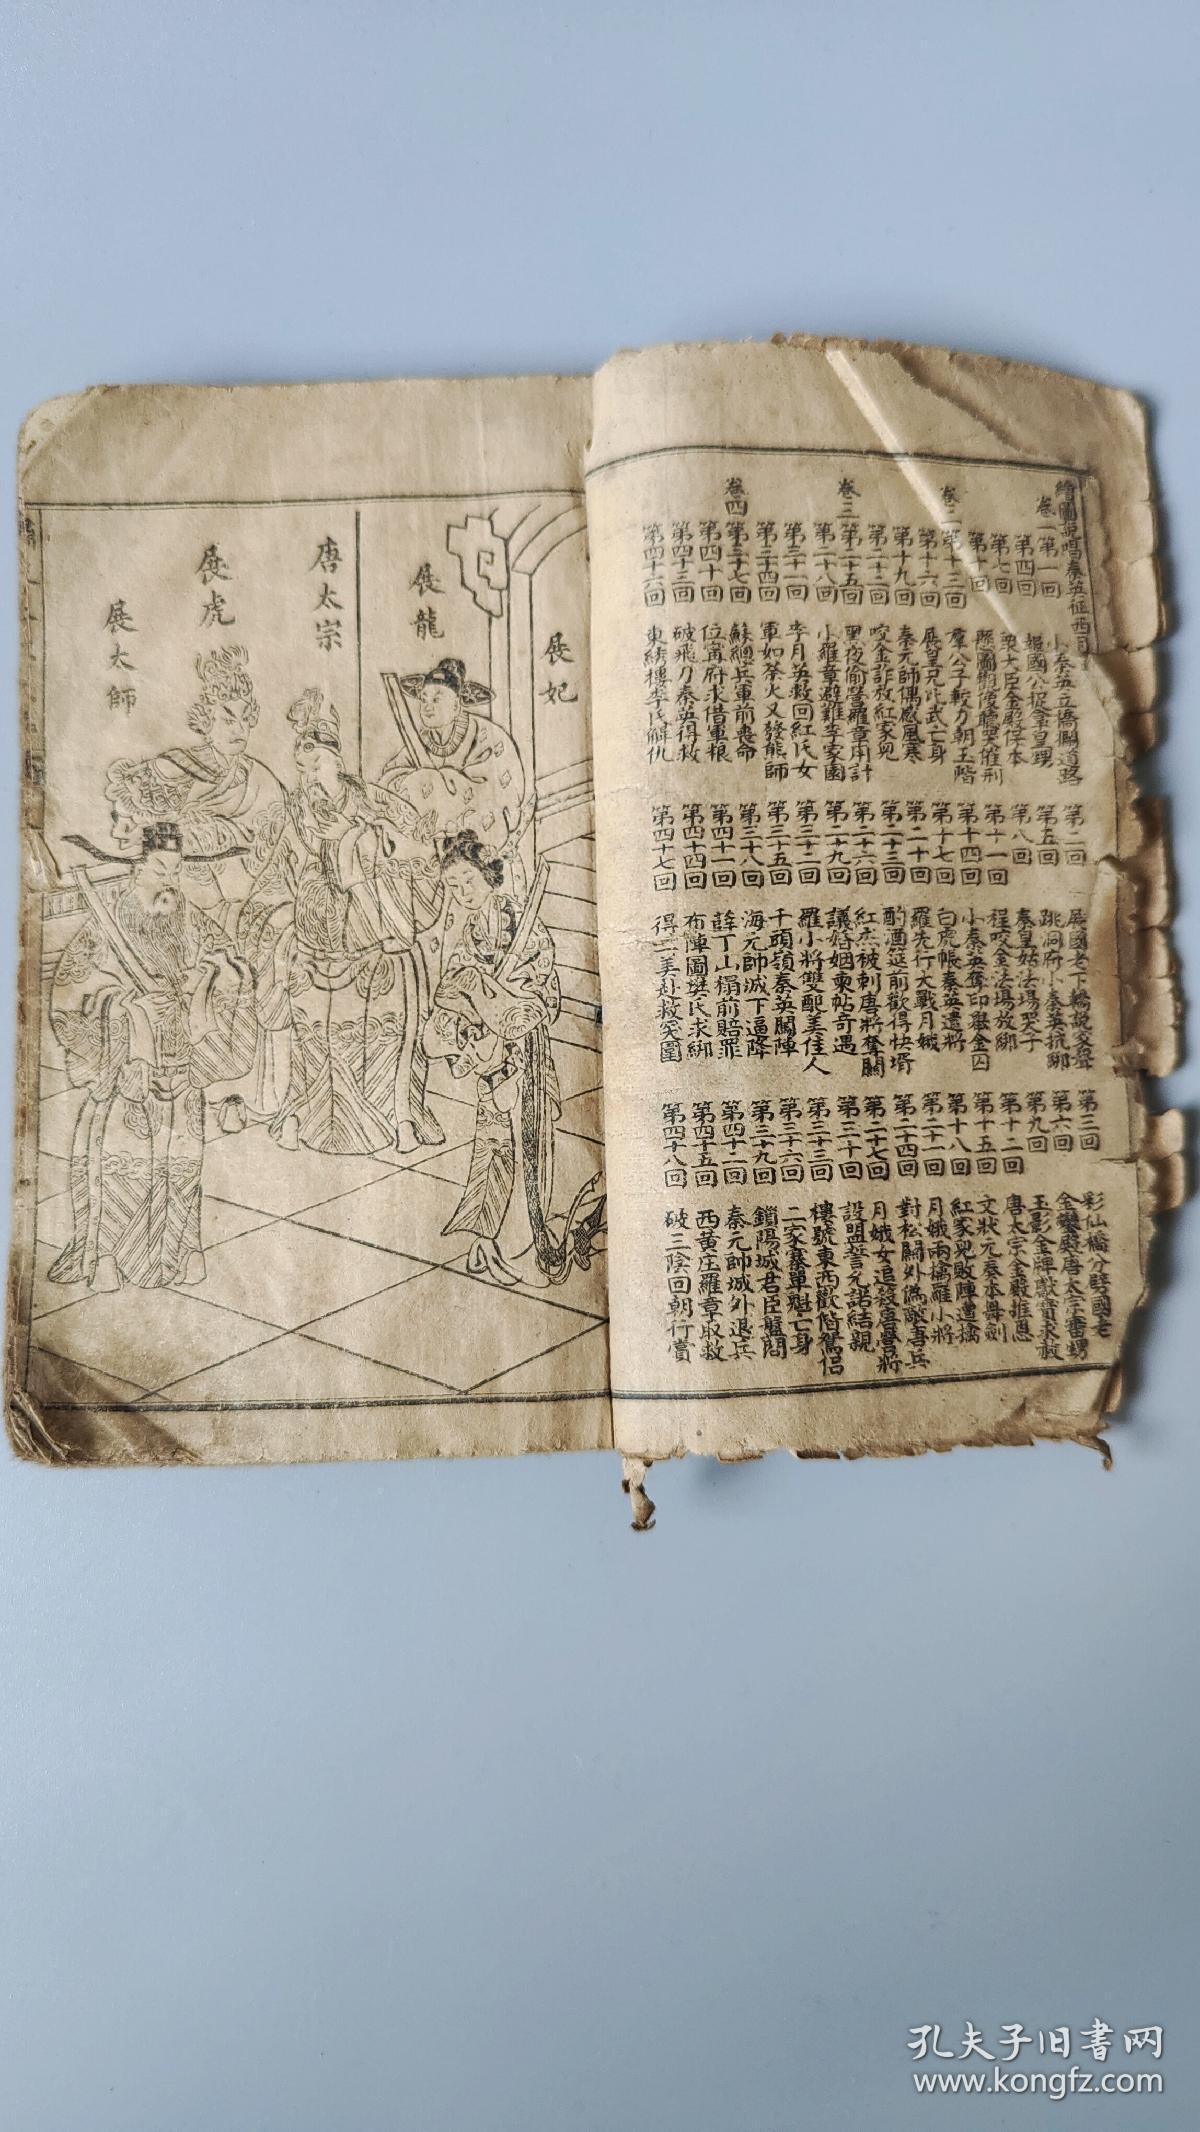 繪圖說唱秦英征西
卷一
第一回 小秦英立橋閙道路
第二回 展國老下轎說家聲
第三回 彩仙橋力劈國老
第四回 報國公捉拿皇甥
第五回 跳洞府小秦英抗綁
第六回 金鑾殿唐太宗審甥
第七回 衆大臣金殿保本
第八回 秦皇姑法塲哭子
第九回 玉彭金牌獻寶求赦
第十回
第十一回 程咬金法塲放綁
第十二回 唐太宗金殿推恩
卷二
第十三回 羣公子較力朝王階
第十四回 小秦英奪印舉金囚
第十五回 文狀元奏本舞劍
第十六回 展皇兄比武亡身
第十七回 白虎帳秦英遣將
第十八回 紅家兒敗陣遭擒
第十九回 秦元師偶感風寒
第二十回 羅先行大戰月娥
第二十一回 月娥兩擒羅小將
第二十二回 咬金詐救紅家兒
第二十三回 酌酒筵前歡得快壻
第二十四回 對松關外偽敵唐兵
卷三
第二十五回 黑夜偷營羅章用計
第二十六回 紅杰被刺唐將奪關
第二十七回 月娥女追殺唐營將
第二十八回 小羅章避難李家園
第二十九回 議婚姻柬帖奇遇
第三十回 設盟誓允諾結親
第三十一回 李月英救回紅氏女
第三十二回 羅小將雙配美佳人
第三十三回 樓號東西歡偕鴛侶
第三十四回 軍如荼火又發熊師
第三十五回 千頭嶺秦英闖陣
第三十六回 二家寨單魁亡身
卷四
第三十七回 蘇總兵軍前喪命
第三十八回 海元帥城下逼降
第三十九回 鎖陽城君臣盤問
第四十回 位甯府求借軍粮
第四十一回 薛丁山榻前賠罪
第四十二回 秦元帥城外退兵
第四十三回 破飛刀秦英得救
第四十四回 布陣圖樊氏求綁
第四十五回 西黃庄羅章取救
第四十六回 東綉樓李氏解仇
第四十七回 得三美赴救突圍
第四十八回 破三陰回朝行賞
展妃
展龍
唐太宗
展虎
展太師
孔夫子旧书网
www.kongfz.com